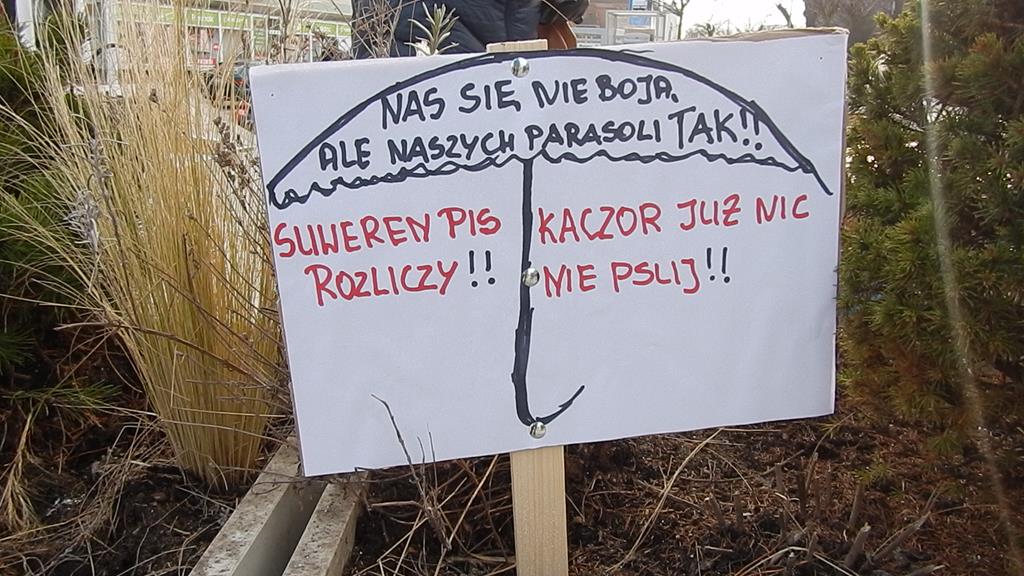 NAS SIĘ NIE BOJĄ.
ALE NASZYCH PARASOLI TAK!!
SUWEREN PIS
ROZLICZY!!
KACZOR JUŻ NIC
NIE PSLIJ!!